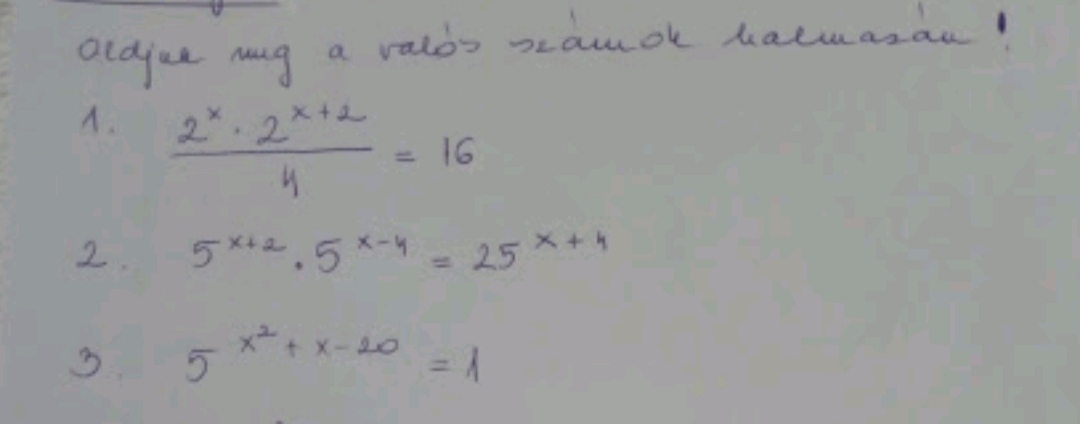 Oldjuk meg a valós számok halmazán!
1. (2^x · 2^(x+2)) / 4 = 16
2. 5^(x+2) · 5^(x-4) = 25^(x+4)
3. 5^(x²+x-20) = 1